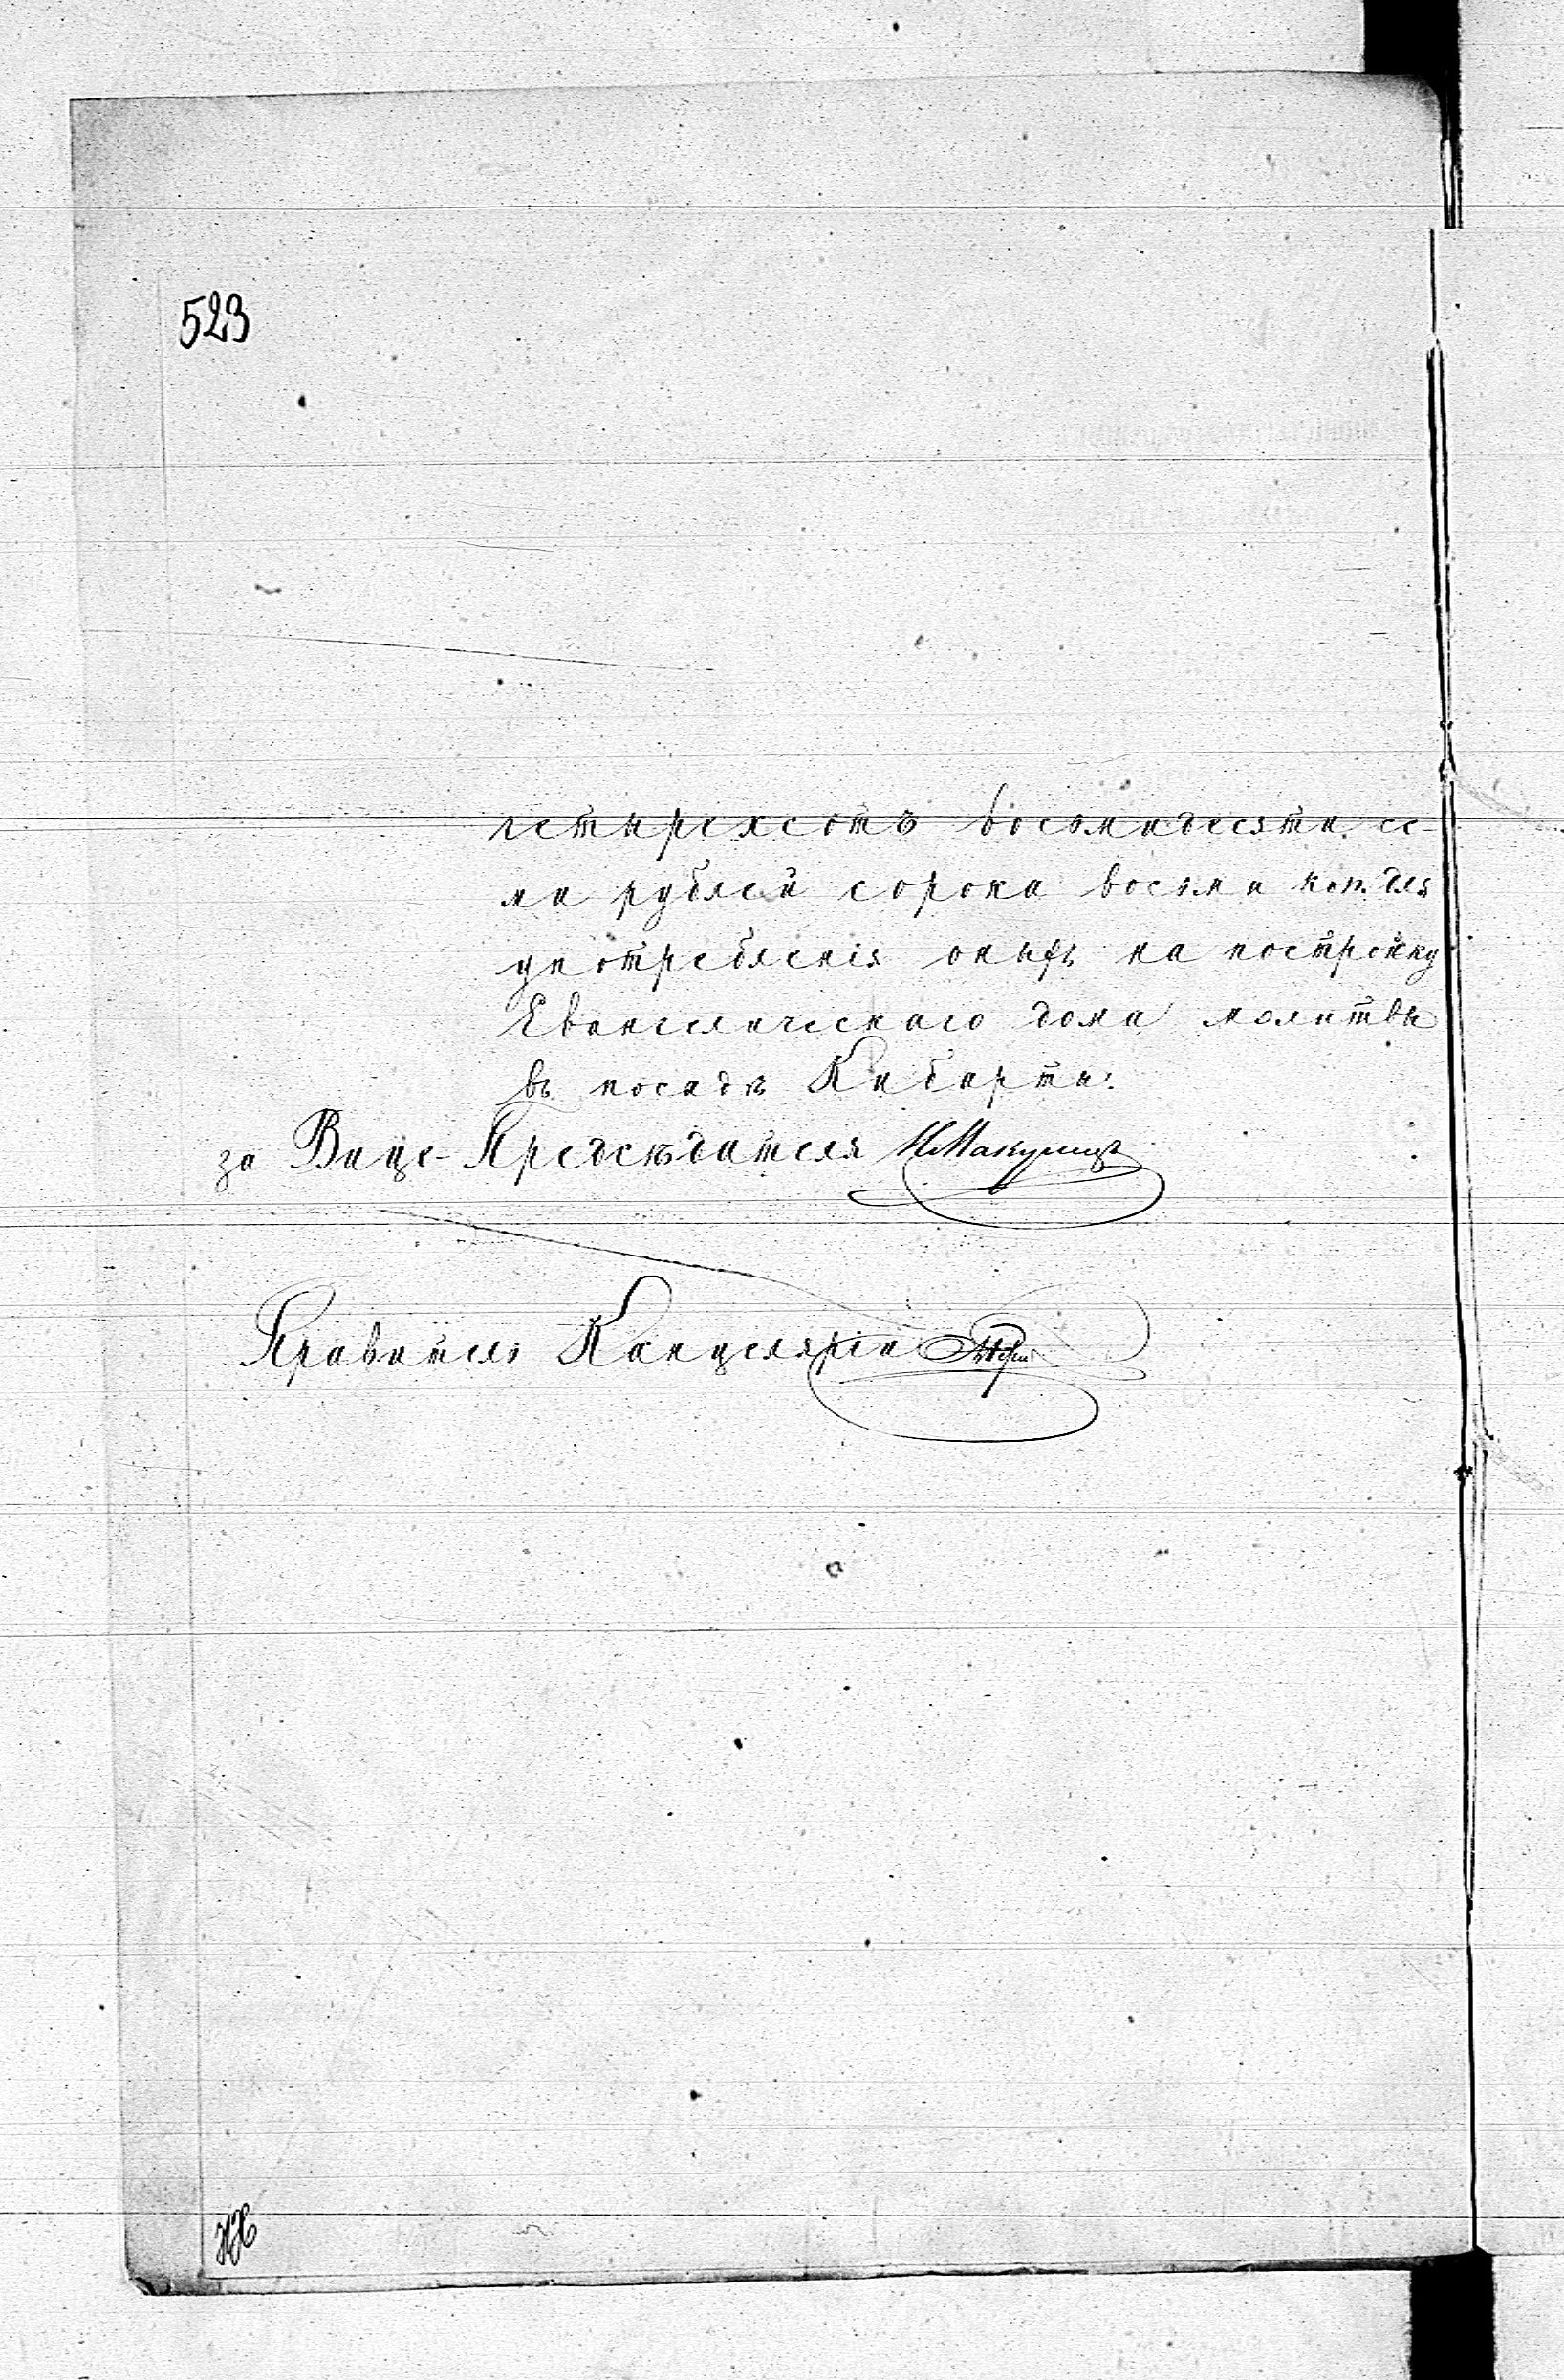 523
четырехсотъ восьмидесяти се-
ми рублей сорока восьми коп. для
употребленія оныхъ на постройку
Евангелическаго дома молитвы
въ посадѣ Кибарты.
за Вице-Предсѣдателя
Правитель Канцеляріи